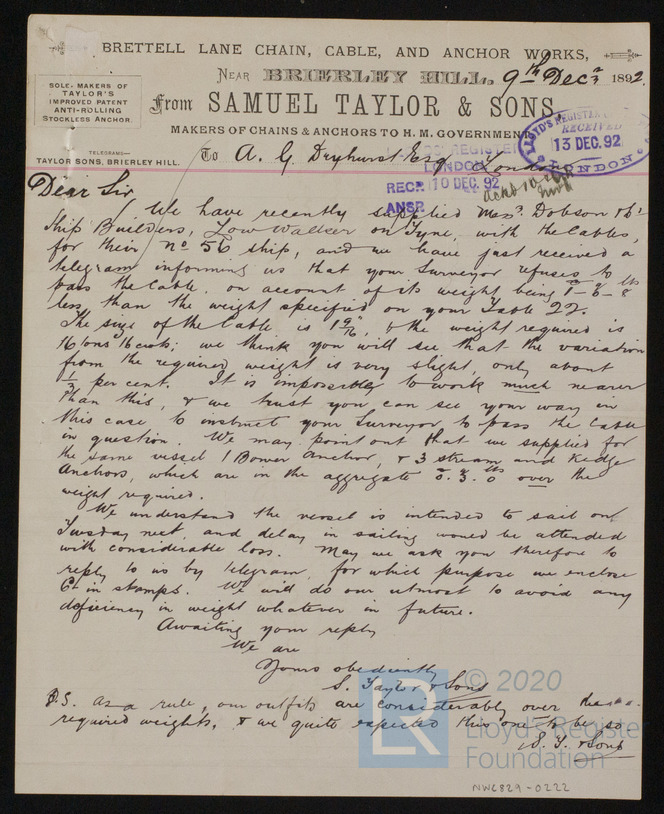 BRETTELL LANE CHAIN, CABLE, AND ANCHOR WORKS,
NEAR BRIERLEY HILL, 9th Decr 1892.
SOLE MAKERS OF
TAYLOR'S
IMPROVED PATENT
ANTI-ROLLING
STOCKLESS ANCHOR.
From SAMUEL TAYLOR & SONS
MAKERS OF CHAINS & ANCHORS TO H. M. GOVERNMENT
TELEGRAMS—
TAYLOR SONS, BRIERLEY HILL.
To A. G. Dryhurst Esq London
LLOYD'S REGISTER
RECEIVED
13 DEC. 92
LONDON
LONDON
RECD. 10 DEC. 92
ANSD.
Dear Sir
We have recently supplied Messrs. Dobson & Co
Ship Builders, Low Walker on Tyne, with the Cables,
for their No 56 ship, and we have just received a
telegram informing us that your Surveyor refuses to
pass the Cable, on account of its weight being 1-0-8 lbs
less than the weight specified on your Table 22.
The size of the Cable is 1 9/16", & the weight required is
16 tons 16 cwts; we think you will see that the variation
from the required weight is very slight, only about
1/3 per cent. It is impossible to work much nearer
than this, & we trust you can see your way in
this case to instruct your Surveyor to pass the Cable
in question. We may point out that we supplied for
the same vessel 1 Bower Anchor, & 3 stream and Kedge
Anchors, which are in the aggregate 0.3.0 lbs over the
weight required.
We understand the vessel is intended to sail on
Tuesday next, and delay in sailing would be attended
with considerable loss. May we ask you therefore to
reply to us by telegram, for which purpose we enclose
6d in stamps. We will do our utmost to avoid any
deficiency in weight whatever in future.
Awaiting your reply
We are
Yours obediently
S. Taylor & Sons
P.S. As a rule, our outfits are considerably over the
required weights, & we quite expected this one to be so
S. T. & Sons
© 2020
LR
Lloyd's Register
Foundation
NWC829-0222